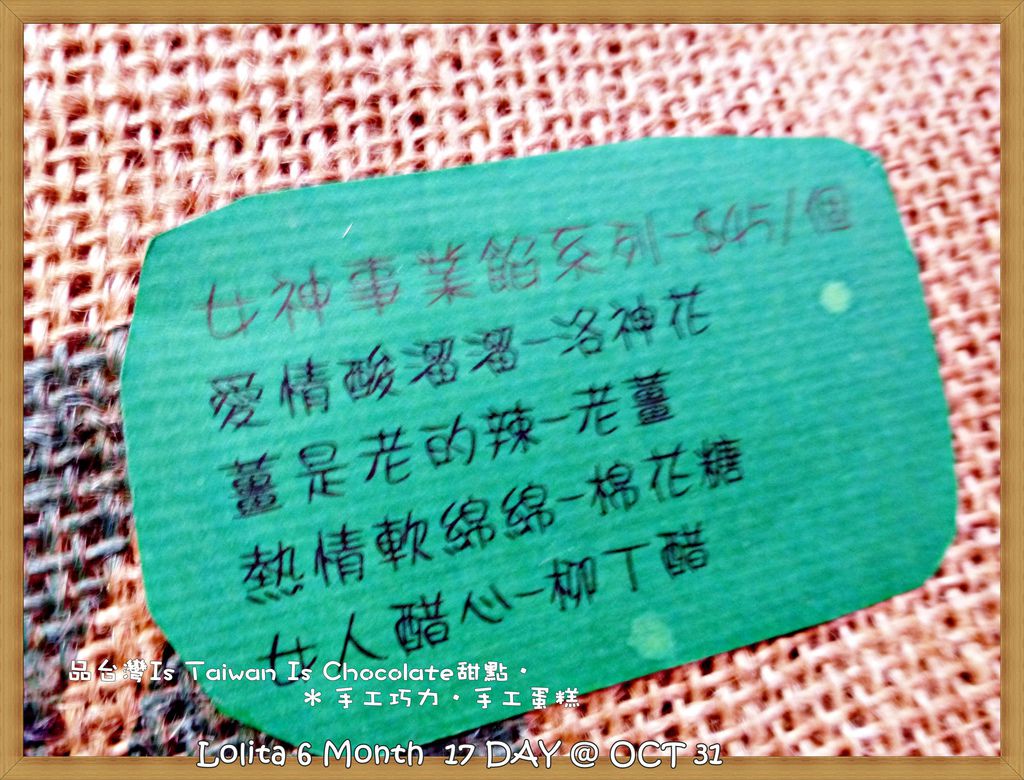 女神事業餡系列-$45/個
愛情酸溜溜-洛神花
薑是老的辣-老薑
熱情軟綿綿-棉花糖
女人醋心-柳丁醋
品台灣Is Taiwan Is Chocolate甜點・
＊手工巧力・手工蛋糕
Lolita 6 Month 17 DAY @ OCT 31